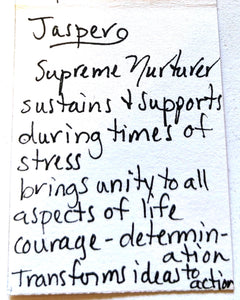 Jasper
Supreme Nurturer
sustains & supports
during times of
stress
brings unity to all
aspects of life
courage - determin-
ation
Transforms ideas to action